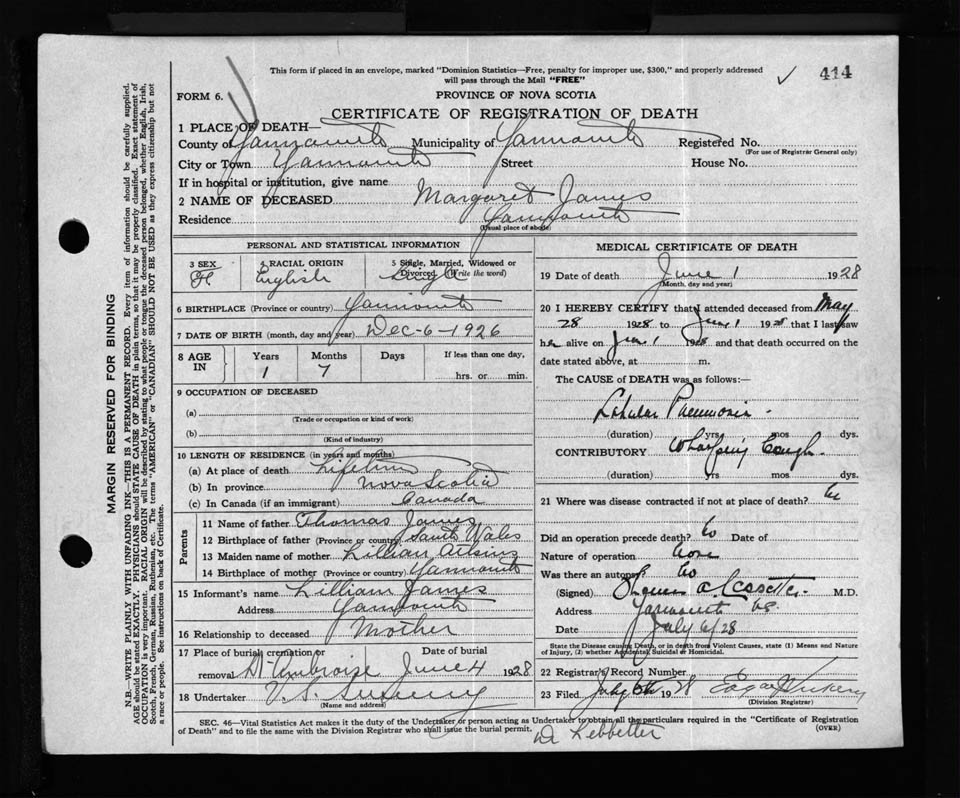 This form if placed in an envelope, marked "Dominion Statistics—Free, penalty for improper use, $300," and properly addressed
will pass through the Mail "FREE"
✓ 414
FORM 6.
PROVINCE OF NOVA SCOTIA
CERTIFICATE OF REGISTRATION OF DEATH
1 PLACE OF DEATH—
County of Yarmouth Municipality of Yarmouth Registered No.
(For use of Registrar General only)
City or Town Yarmouth Street House No.
If in hospital or institution, give name
2 NAME OF DECEASED Margaret James
Residence Yarmouth
(Usual place of abode)
PERSONAL AND STATISTICAL INFORMATION
3 SEX 4 RACIAL ORIGIN 5 Single, Married, Widowed or
Divorced (Write the word)
F English Single
6 BIRTHPLACE (Province or country) Yarmouth
7 DATE OF BIRTH (month, day and year) Dec-6-1926
8 AGE IN Years Months Days If less than one day,
1 7 hrs. or min.
9 OCCUPATION OF DECEASED
(a)
(Trade or occupation or kind of work)
(b)
(Kind of industry)
10 LENGTH OF RESIDENCE (in years and months)
(a) At place of death Lifetime
(b) In province Nova Scotia
(c) In Canada (if an immigrant) Canada
Parents
11 Name of father Thomas James
12 Birthplace of father (Province or country) South Wales
13 Maiden name of mother Lillian
14 Birthplace of mother (Province or country) Yarmouth
15 Informant's name Lilliam James
Address Yarmouth
16 Relationship to deceased Mother
17 Place of burial, cremation or Date of burial
removal St Ambroise June 4 1928
18 Undertaker V. S.
(Name and address)
MEDICAL CERTIFICATE OF DEATH
19 Date of death June 1 1928
(Month, day and year)
20 I HEREBY CERTIFY that I attended deceased from May
28 1928 to June 1 1928 that I last saw
her alive on June 1 1928 and that death occurred on the
date stated above, at m.
The CAUSE of DEATH was as follows:—
Lobular Pneumonia
(duration) yrs. mos dys.
CONTRIBUTORY Whooping Cough
(duration) yrs mos dys.
21 Where was disease contracted if not at place of death?
Did an operation precede death? No Date of
Nature of operation None
Was there an autopsy? No
(Signed) M.D.
Address Yarmouth NS
Date July 6/28
State the Disease causing Death, or in death from Violent Causes, state (1) Means and Nature
of Injury, (2) whether Accidental, Suicidal or Homicidal.
22 Registrar's Record Number
23 Filed July 6th 1928 Edgar
(Division Registrar)
SEC. 46—Vital Statistics Act makes it the duty of the Undertaker or person acting as Undertaker to obtain all the particulars required in the "Certificate of Registration
of Death" and to file the same with the Division Registrar who shall issue the burial permit.
(OVER)
Dr Lebbetter
MARGIN RESERVED FOR BINDING
N.B.—WRITE PLAINLY WITH UNFADING INK—THIS IS A PERMANENT RECORD. Every item of information should be carefully supplied.
AGE should be stated EXACTLY. PHYSICIANS should STATE CAUSE OF DEATH in plain terms, so that it may be properly classified. Exact statement of
OCCUPATION is very important. RACIAL ORIGIN will be described by stating to what people or tongue the deceased person belonged, whether English, Irish,
Scotch, French, German, Russian, Ruthenian, etc. The terms "AMERICAN" or "CANADIAN" SHOULD NOT BE USED as they express citizenship but not
a race or people. See instructions on back of Certificate.